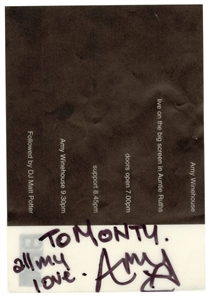 Amy Winehouse
live on the big screen in Auntie Ruths
doors open 7.00pm
support 8.45pm
Amy Winehouse 9.30pm
Followed by DJ Matt Potter
TO MONTY.
all my
love. Amy X